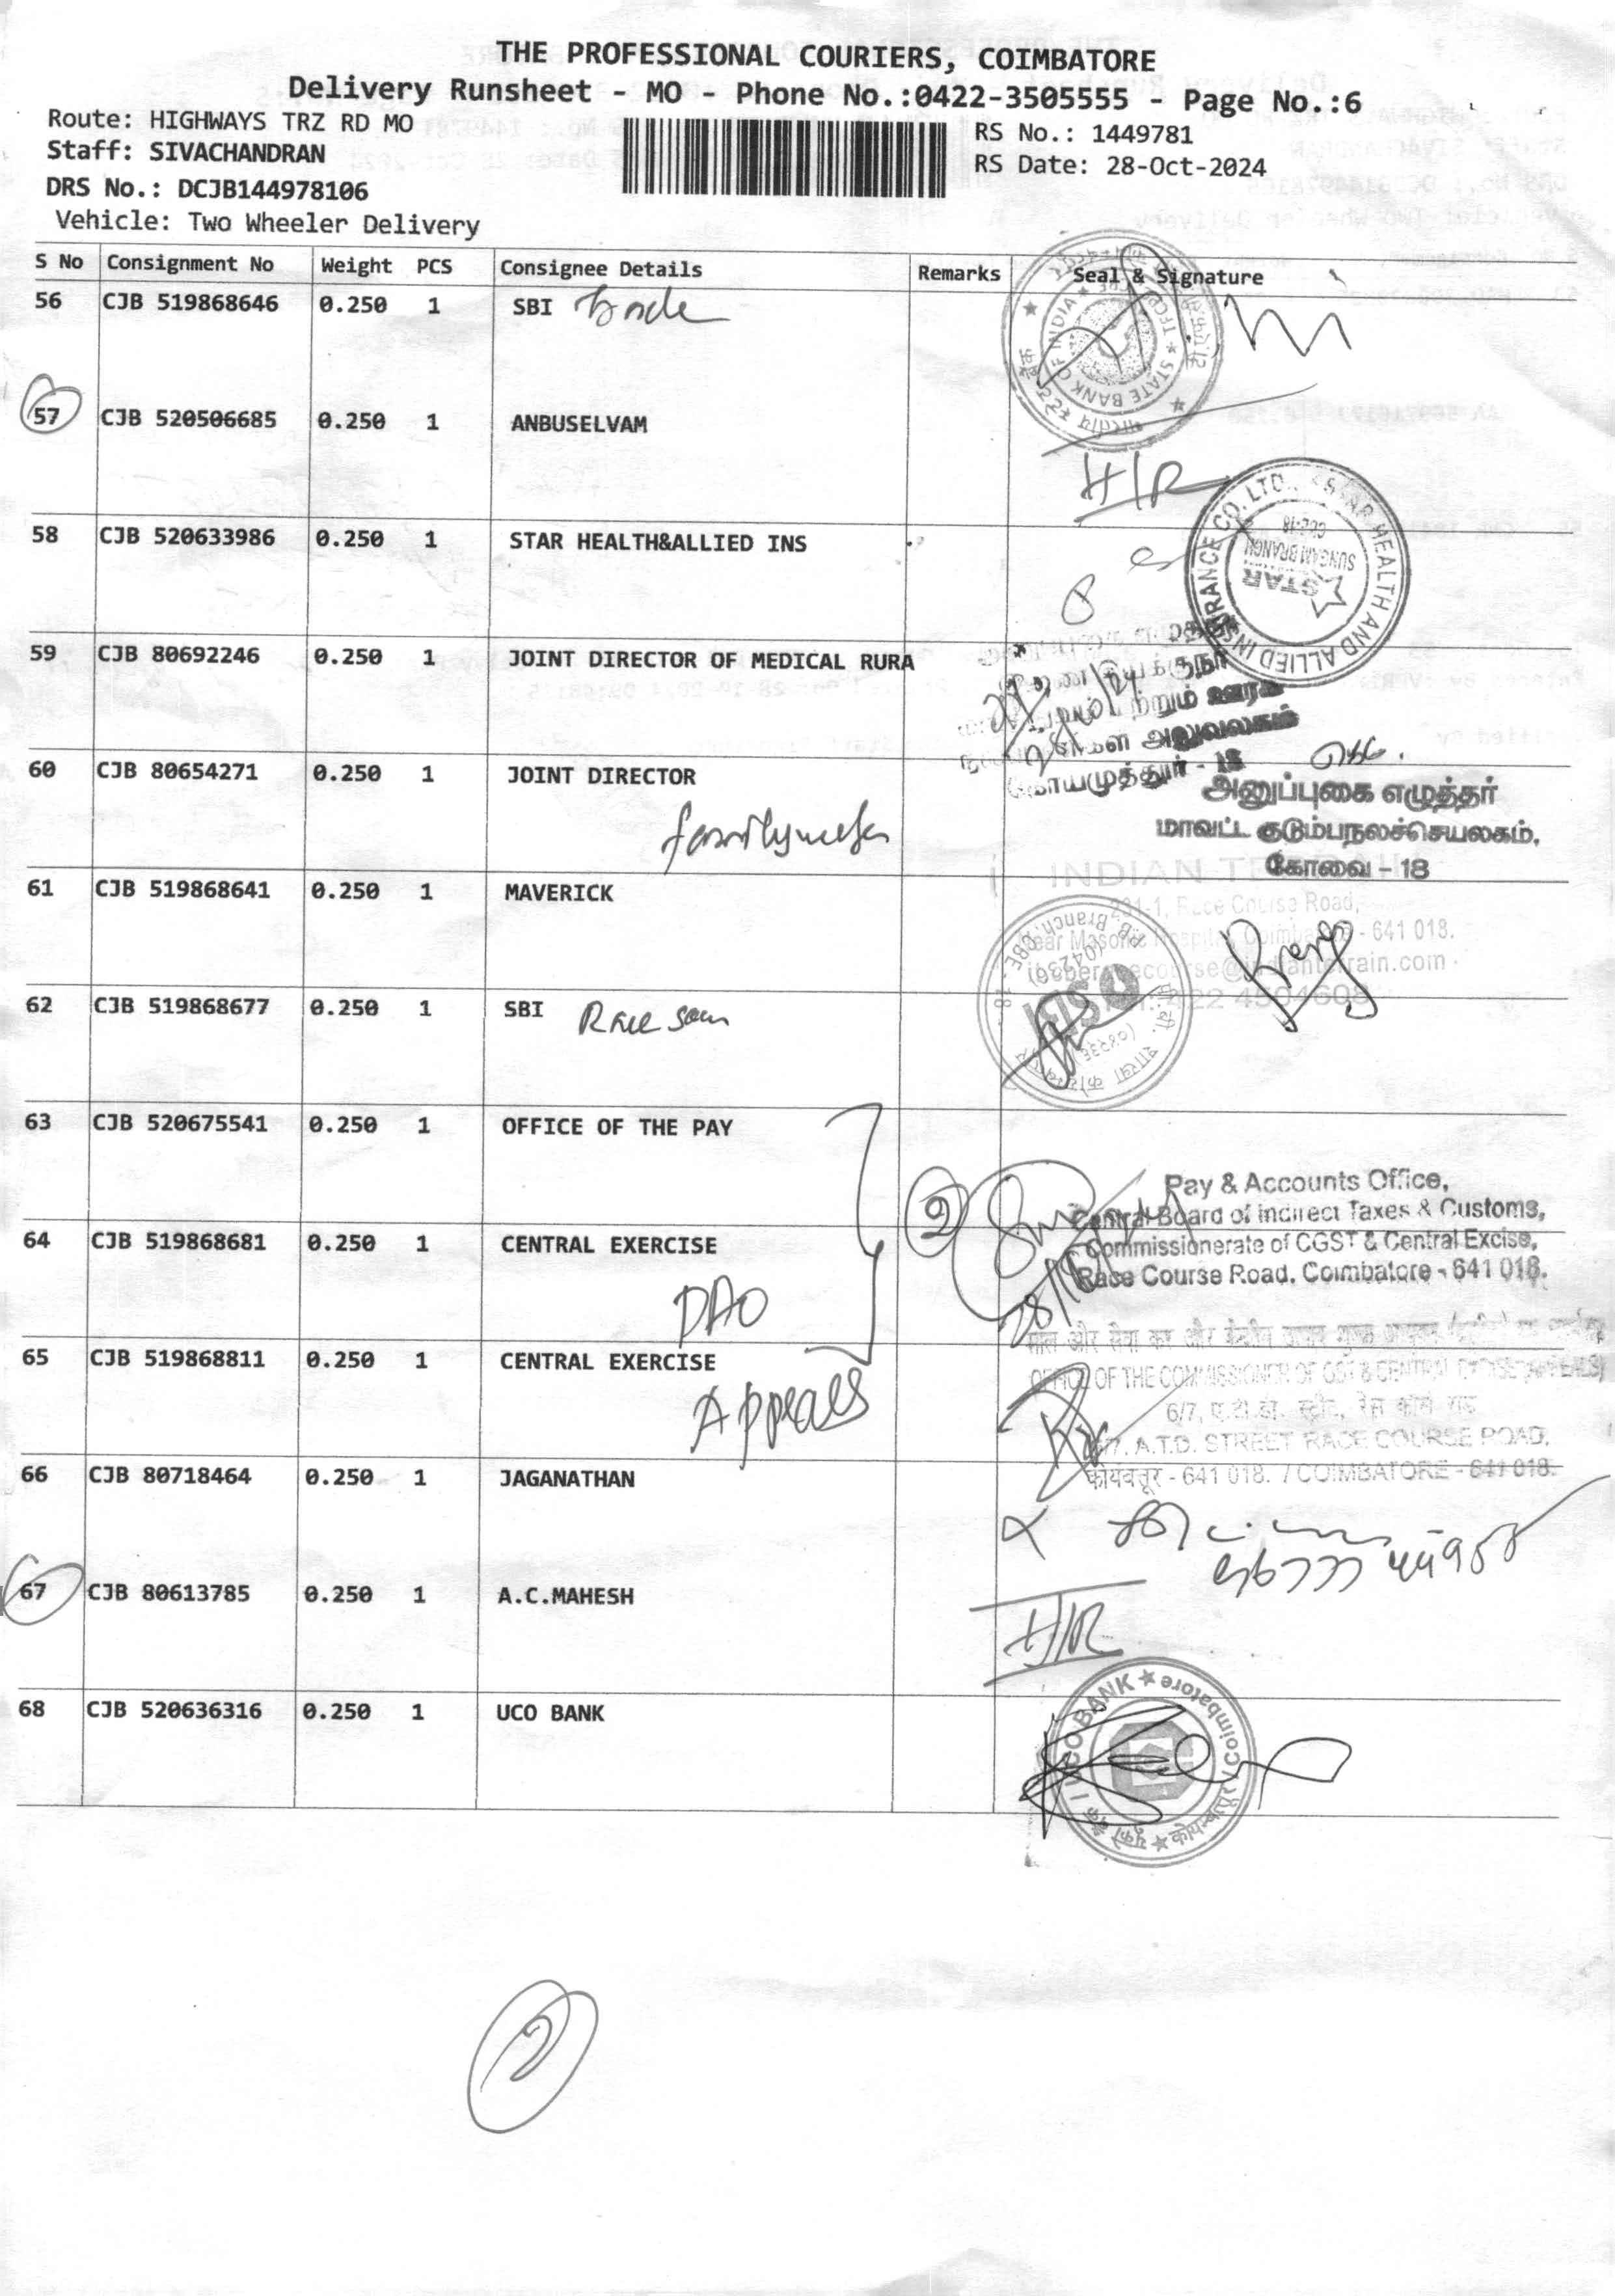 THE PROFESSIONAL COURIERS, COIMBATORE
Delivery Runsheet - MO - Phone No.:0422-3505555 - Page No.:6
Route: HIGHWAYS TRZ RD MO
Staff: SIVACHANDRAN
DRS No.: DCJB144978106
Vehicle: Two Wheeler Delivery
RS No.: 1449781
RS Date: 28-Oct-2024
S No Consignment No Weight PCS Consignee Details Remarks Seal & Signature
56 CJB 519868646 0.250 1 SBI
STATE BANK OF INDIA
57 CJB 520506685 0.250 1 ANBUSELVAM
58 CJB 520633986 0.250 1 STAR HEALTH&ALLIED INS
STAR HEALTH AND ALLIED INSURANCE CO. LTD.
STAR
SUNGAM BRANCH
59 CJB 80692246 0.250 1 JOINT DIRECTOR OF MEDICAL RURA
அலுவலகம்
கோயமுத்தூர் - 18
60 CJB 80654271 0.250 1 JOINT DIRECTOR
அனுப்புகை எழுத்தர்
மாவட்ட குடும்பநலச்செயலகம்,
கோவை - 18
61 CJB 519868641 0.250 1 MAVERICK
INDIAN
Race Course Road,
Near Masonic Hospital, Coimbatore - 641 018.
62 CJB 519868677 0.250 1 SBI
SBI
63 CJB 520675541 0.250 1 OFFICE OF THE PAY
2
Pay & Accounts Office,
Central Board of Indirect Taxes & Customs,
Commissionerate of CGST & Central Excise,
Race Course Road, Coimbatore - 641 018.
64 CJB 519868681 0.250 1 CENTRAL EXERCISE
65 CJB 519868811 0.250 1 CENTRAL EXERCISE
Appeals
OFFICE OF THE COMMISSIONER OF GST & CENTRAL EXCISE (APPEALS)
6/7, ए.टी.डी. स्ट्रीट, रेस कोर्स रोड
6/7, A.T.D. STREET RACE COURSE ROAD,
कोयंबत्तूर - 641 018. / COIMBATORE - 641 018.
66 CJB 80718464 0.250 1 JAGANATHAN
67 CJB 80613785 0.250 1 A.C.MAHESH
68 CJB 520636316 0.250 1 UCO BANK
UCO BANK
Coimbatore